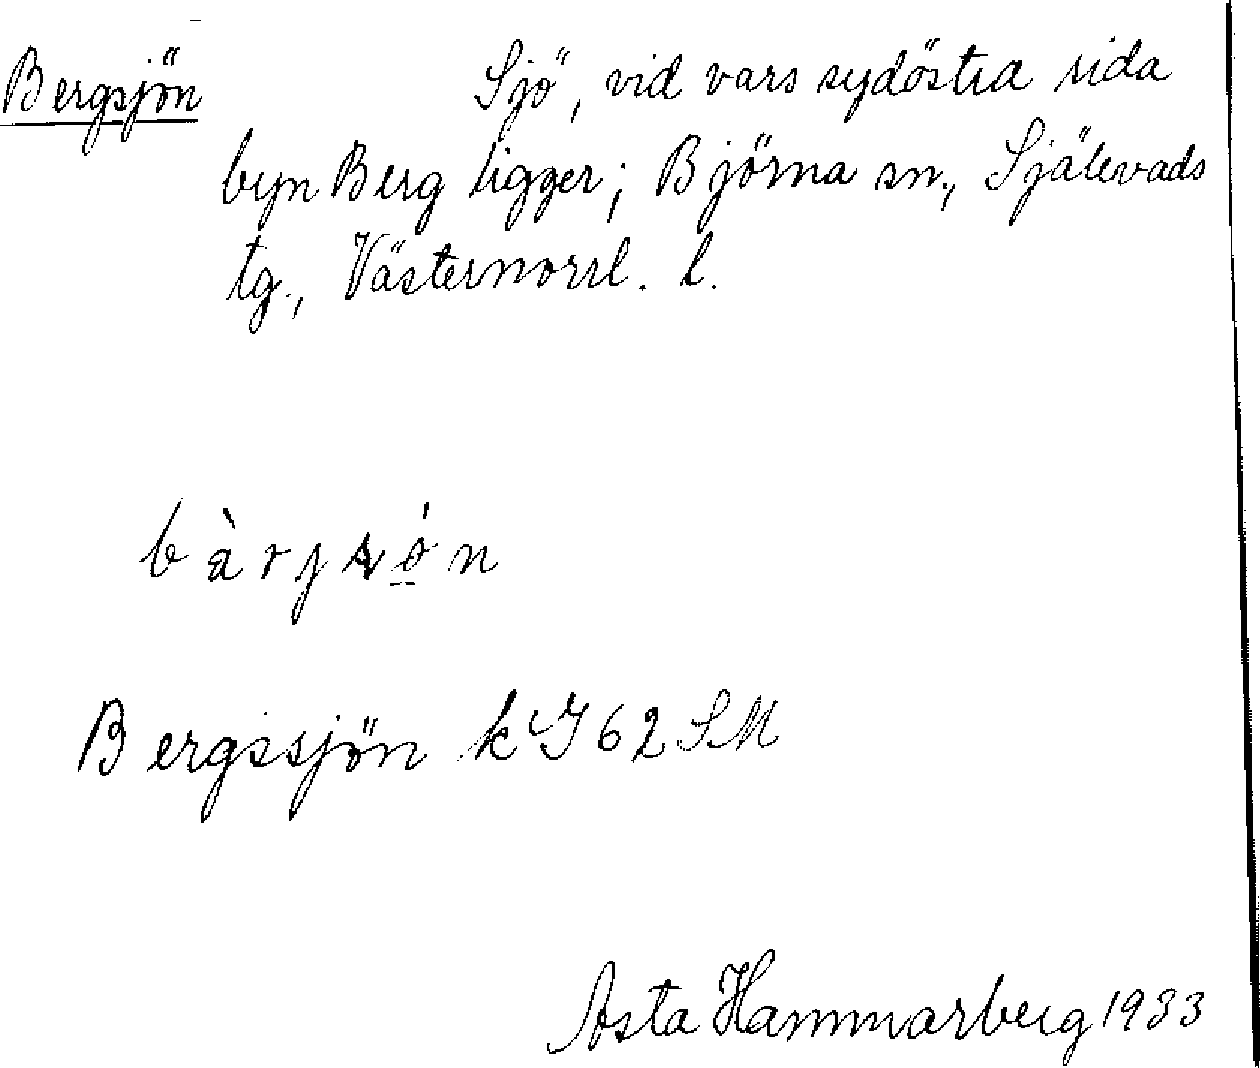 Bergsjön Sjö, vid vars sydöstra sida
byn Berg ligger; Björna sn, Själevads
tg., Västernorrl. l.
Bergssjön k J 62 SM
Asta Hammarberg 1933